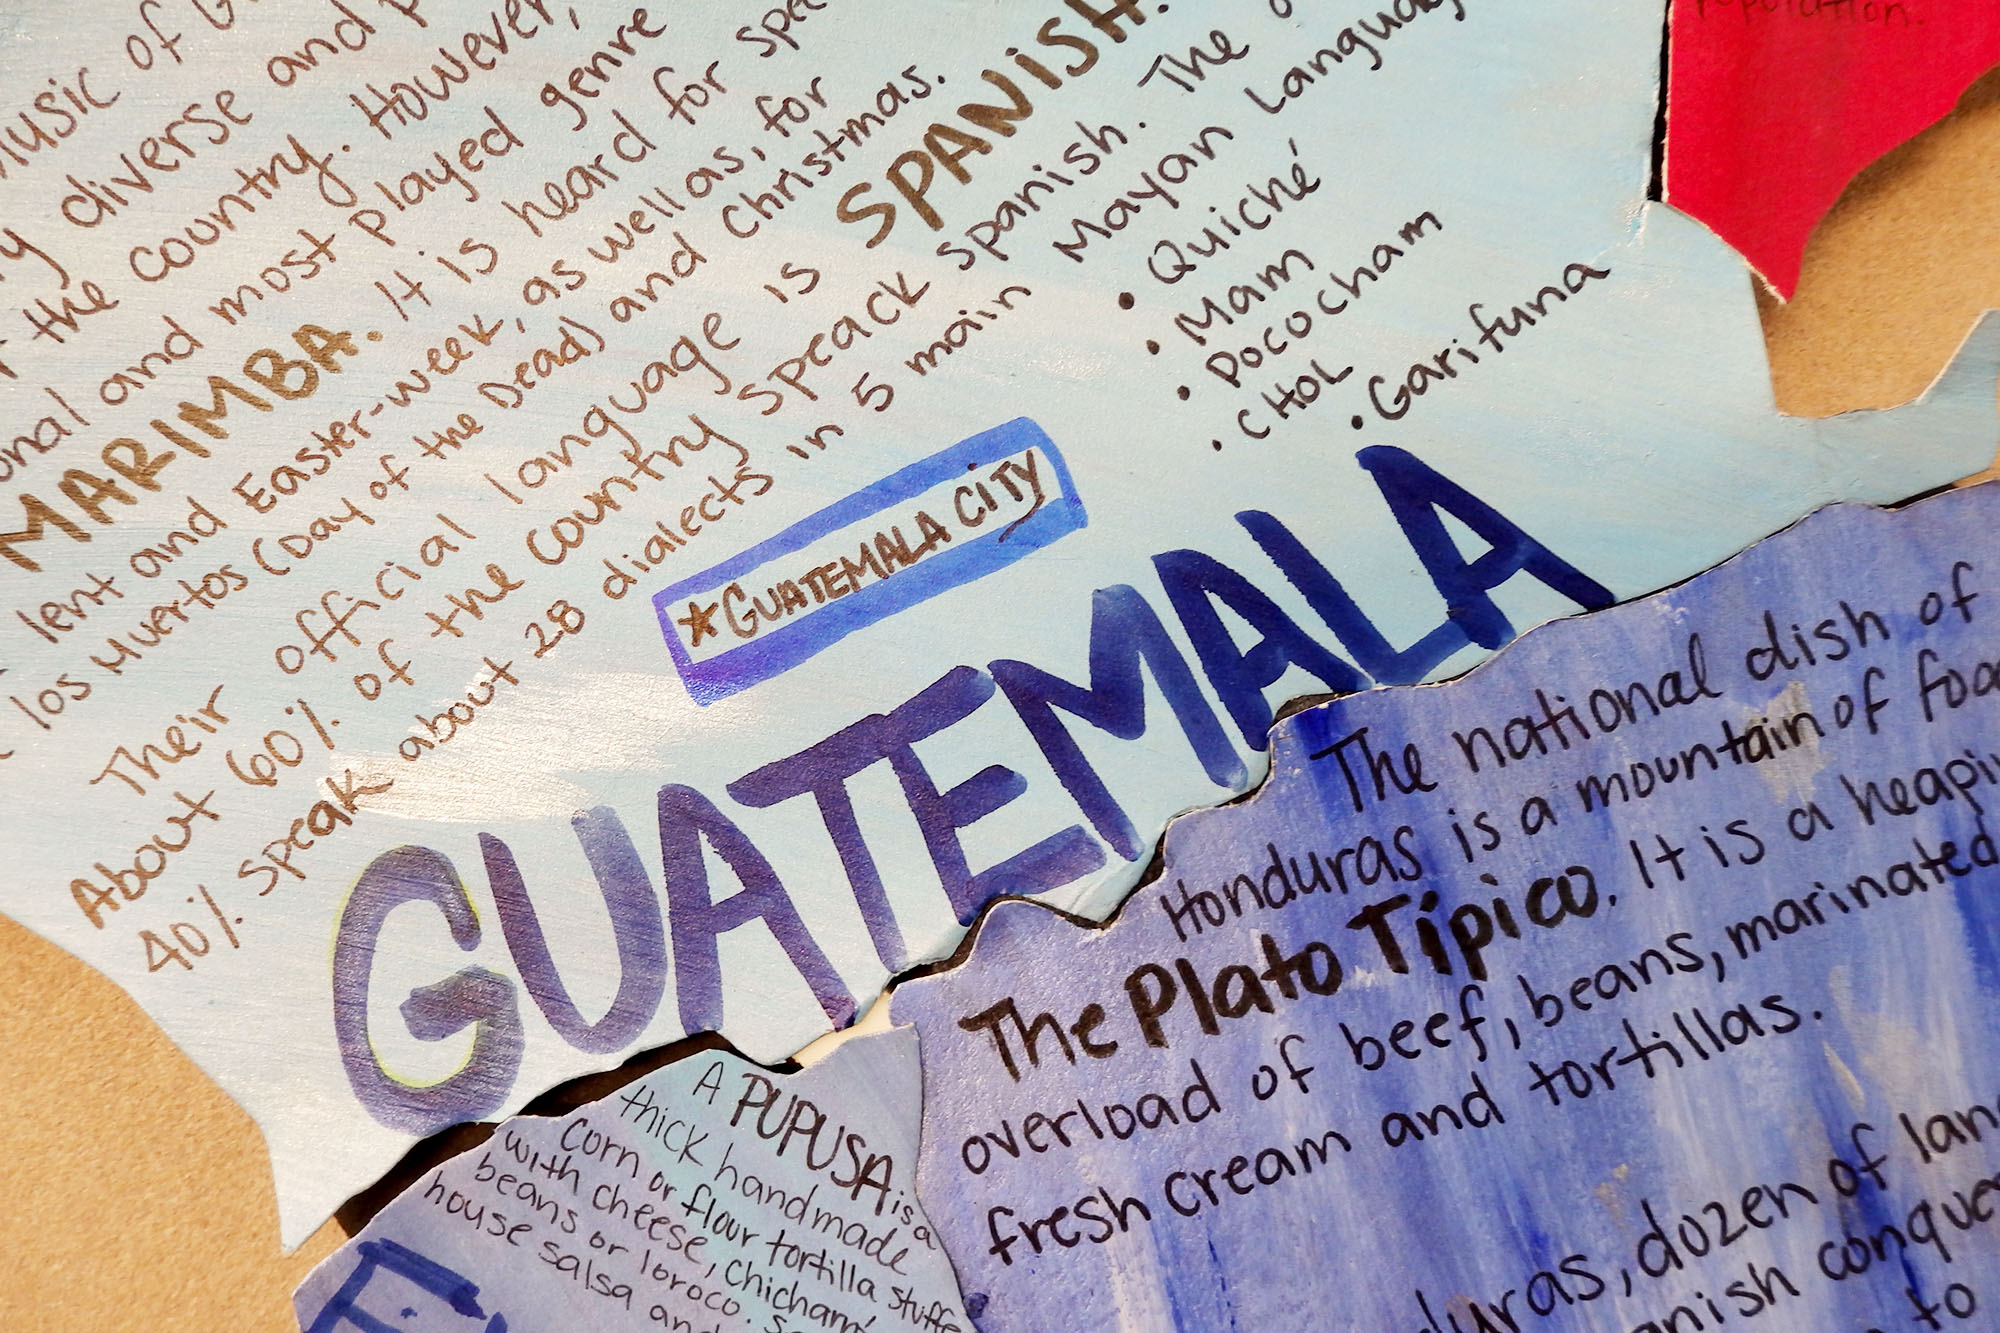 Music of
diverse and
the country. However,
and most played genre
MARIMBA. It is heard for
lent and Easter-week, as well as, for
los Muertos (Day of the Dead) and Christmas.
Their official language is SPANISH.
About 60% of the country speack spanish. The
40% speak about 28 dialects in 5 main Mayan
• Quiché
• Mam
• Pococham
• CHOL
• Garifuna
★GUATEMALA CITY
GUATEMALA
The national dish of
Honduras is a mountain of
The Plato Típico. It is a
overload of beef, beans, marinated
fresh cream and tortillas.
dozen of
to
A PUPUSA is a
thick handmade
corn or flour tortilla
with cheese,
beans or loroco.
house salsa and